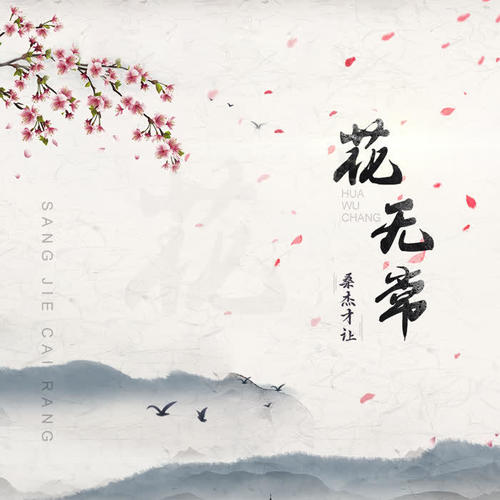 花无常
HUA
WU
CHANG
桑杰才让
SANG JIE CAI RANG
花